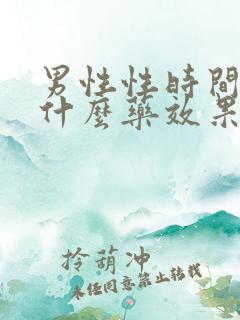 男性性時間
什麼藥效果
拎葫冲
未经同意禁止转载